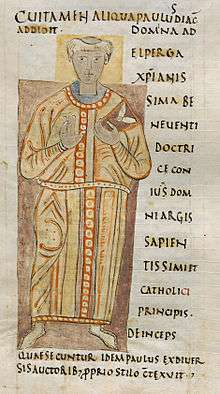 CUI TAMEN ALIQUA PAULUS DIAC
ADDIDIT. DOMNA AD
ELPERGA
XPIANIS
SIMA BE
NEVENTI
DOCTRI
CE CON
IUS DOM
NI ARGIS
SAPIEN
TISSIMI ET
CATHOLICI
PRINCIPIS.
DEINCEPS
QUAE SECUNTUR IDEM PAULUS EX DIVER
SIS AUCTORIB; PPRIO STILO CTEXUIT.